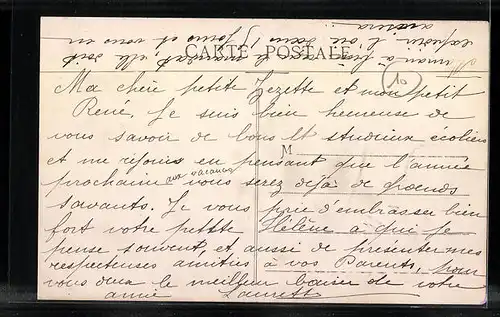 CARTE POSTALE
10
Ma chère petite Zezette et mon petit
René, Je suis bien heureuse de
vous savoir de bons et studieux écoliers
M
et me réjouis en pensant que l'année
prochaine aux vacances vous serez déjà de grands
savants. Je vous prie d'embrasser bien
fort votre petite Hélène à qui je
pense souvent, et aussi de présenter mes
respectueuses amitiés à vos Parents, pour
vous deux le meilleur baiser de votre
amie Laurette